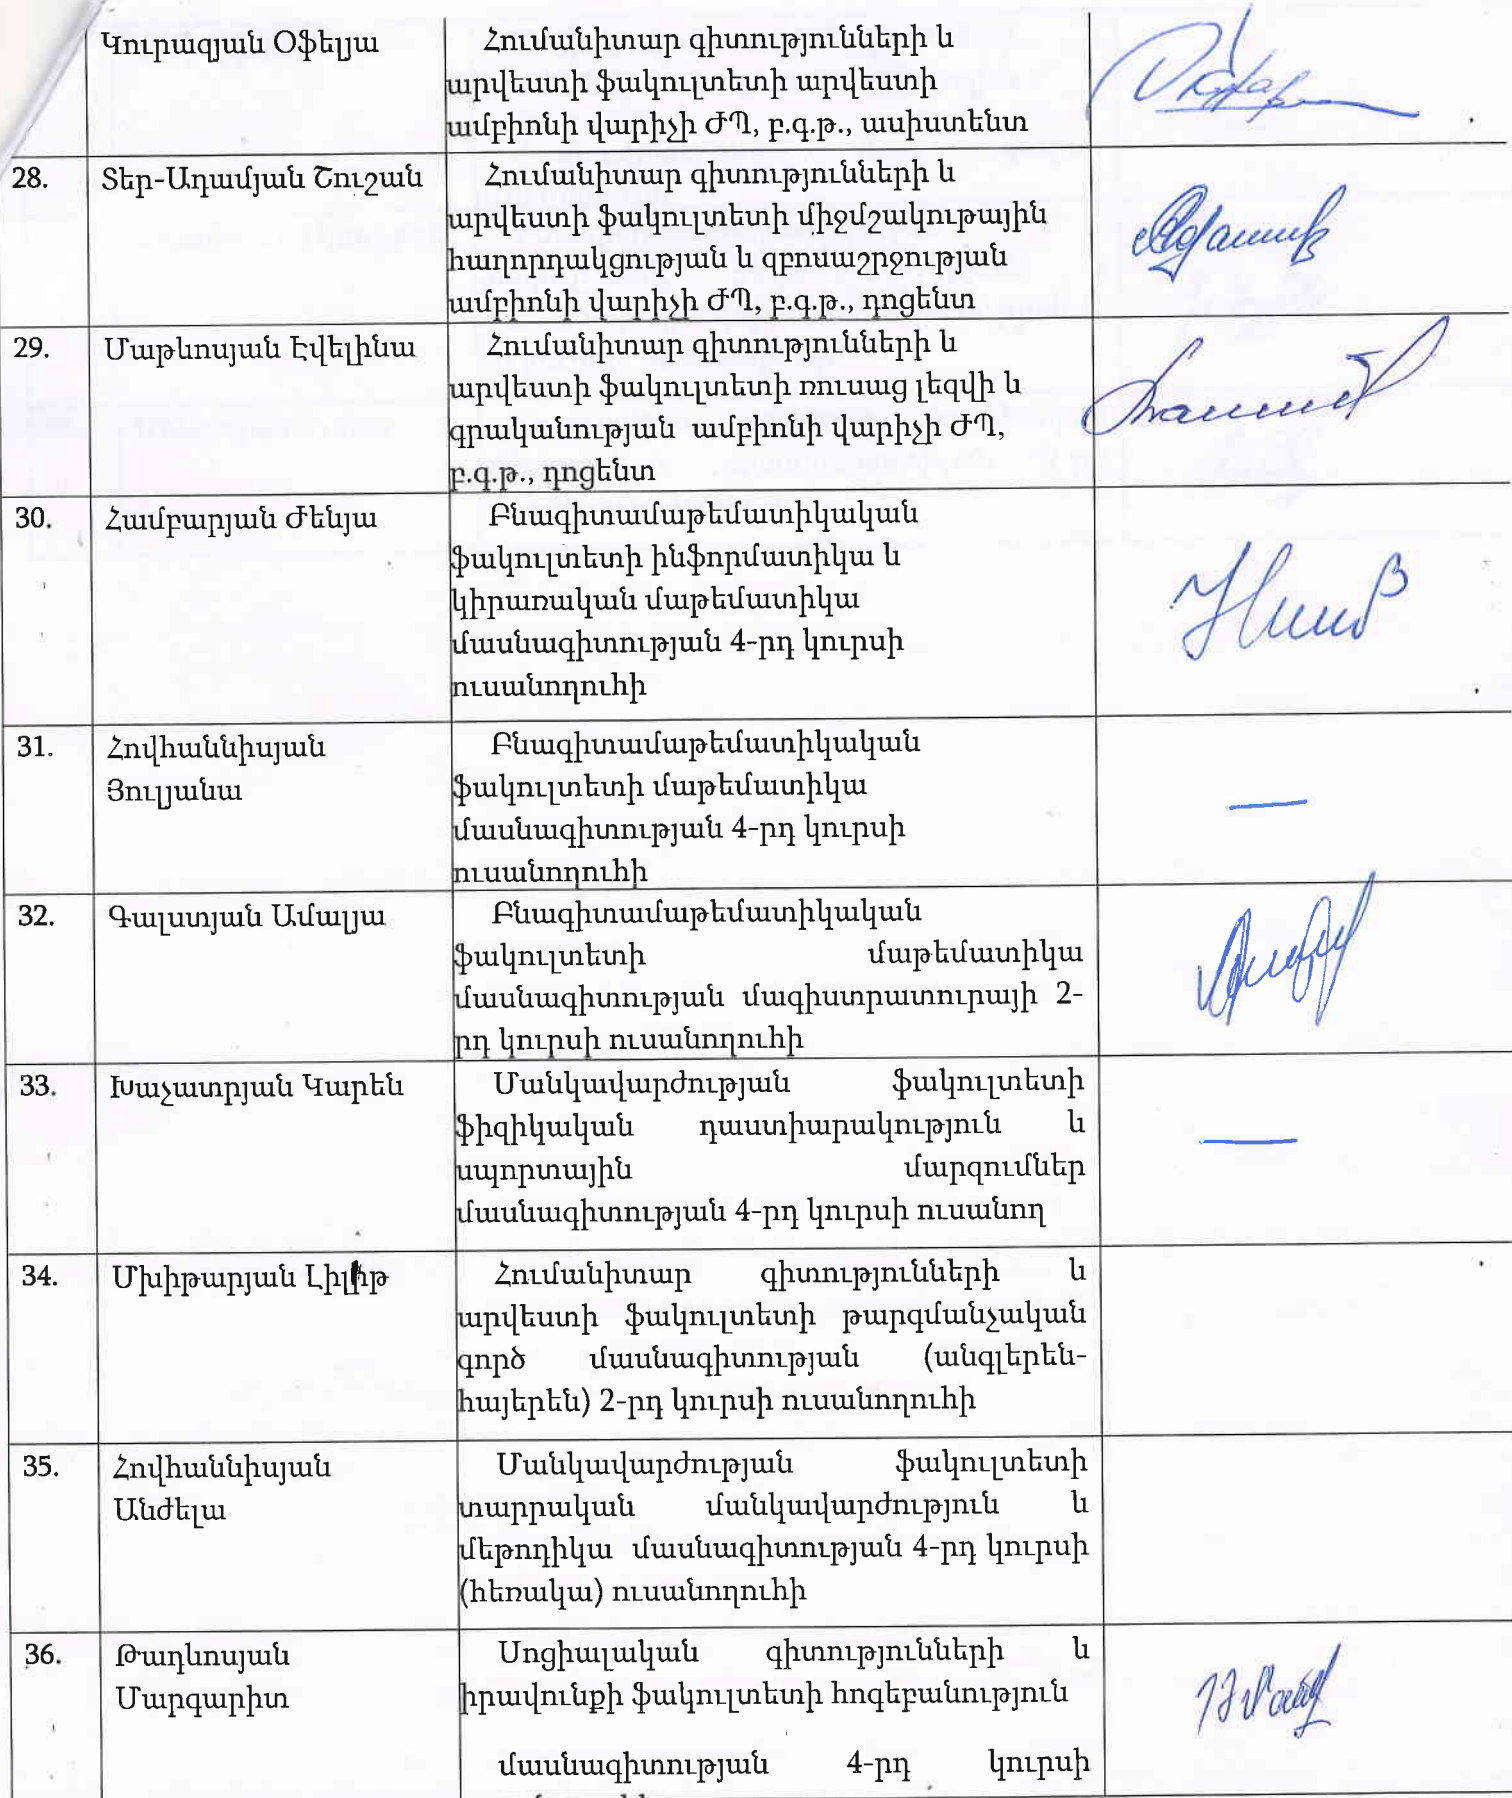 Կուրազյան Օֆելյա
Հումանիտար գիտությունների և
արվեստի ֆակուլտետի արվեստի
ամբիոնի վարիչի ԺՊ, բ.գ.թ., ասիստենտ
28.
Տեր-Ադամյան Շուշան
Հումանիտար գիտությունների և
արվեստի ֆակուլտետի միջմշակութային
հաղորդակցության և զբոսաշրջության
ամբիոնի վարիչի ԺՊ, բ.գ.թ., դոցենտ
29.
Մաթևոսյան Էվելինա
Հումանիտար գիտությունների և
արվեստի ֆակուլտետի ռուսաց լեզվի և
գրականության ամբիոնի վարիչի ԺՊ,
բ.գ.թ., դոցենտ
30.
Համբարյան Ժենյա
Բնագիտամաթեմատիկական
ֆակուլտետի ինֆորմատիկա և
կիրառական մաթեմատիկա
մասնագիտության 4-րդ կուրսի
ուսանողուհի
31.
Հովհաննիսյան
Յուլյանա
Բնագիտամաթեմատիկական
ֆակուլտետի մաթեմատիկա
մասնագիտության 4-րդ կուրսի
ուսանողուհի
32.
Գալստյան Ամալյա
Բնագիտամաթեմատիկական
ֆակուլտետի մաթեմատիկա
մասնագիտության մագիստրատուրայի 2-
րդ կուրսի ուսանողուհի
33.
Խաչատրյան Կարեն
Մանկավարժության ֆակուլտետի
ֆիզիկական դաստիարակություն և
սպորտային մարզումներ
մասնագիտության 4-րդ կուրսի ուսանող
34.
Մխիթարյան Լիլիթ
Հումանիտար գիտությունների և
արվեստի ֆակուլտետի թարգմանչական
գործ մասնագիտության (անգլերեն-
հայերեն) 2-րդ կուրսի ուսանողուհի
35.
Հովհաննիսյան
Անժելա
Մանկավարժության ֆակուլտետի
տարրական մանկավարժություն և
մեթոդիկա մասնագիտության 4-րդ կուրսի
(հեռակա) ուսանողուհի
36.
Թադևոսյան
Մարգարիտ
Սոցիալական գիտությունների և
իրավունքի ֆակուլտետի հոգեբանություն
մասնագիտության 4-րդ կուրսի